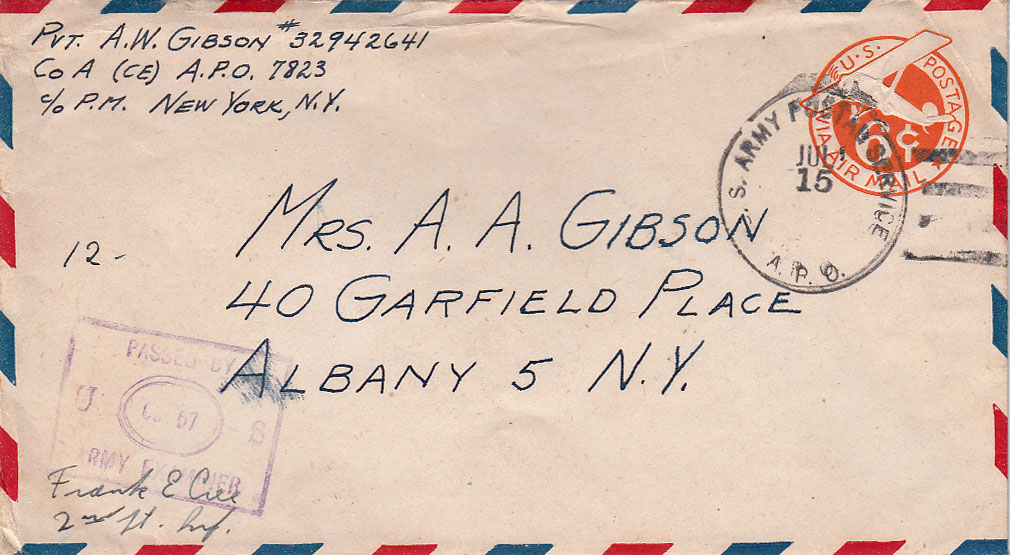 PVT. A.W. GIBSON #32942641
CO A (CE) A.P.O. 7823
c/o P.M. NEW YORK, N.Y.
U.S. POSTAGE
VIA AIR MAIL
6¢
U.S. ARMY POSTAL SERVICE
JUL
15
A.P.O.
MRS. A. A. GIBSON
12-
40 GARFIELD PLACE
ALBANY 5 N.Y.
PASSED BY
U S
ARMY EXAMINER
Frank E
2nd Lt. Inf.